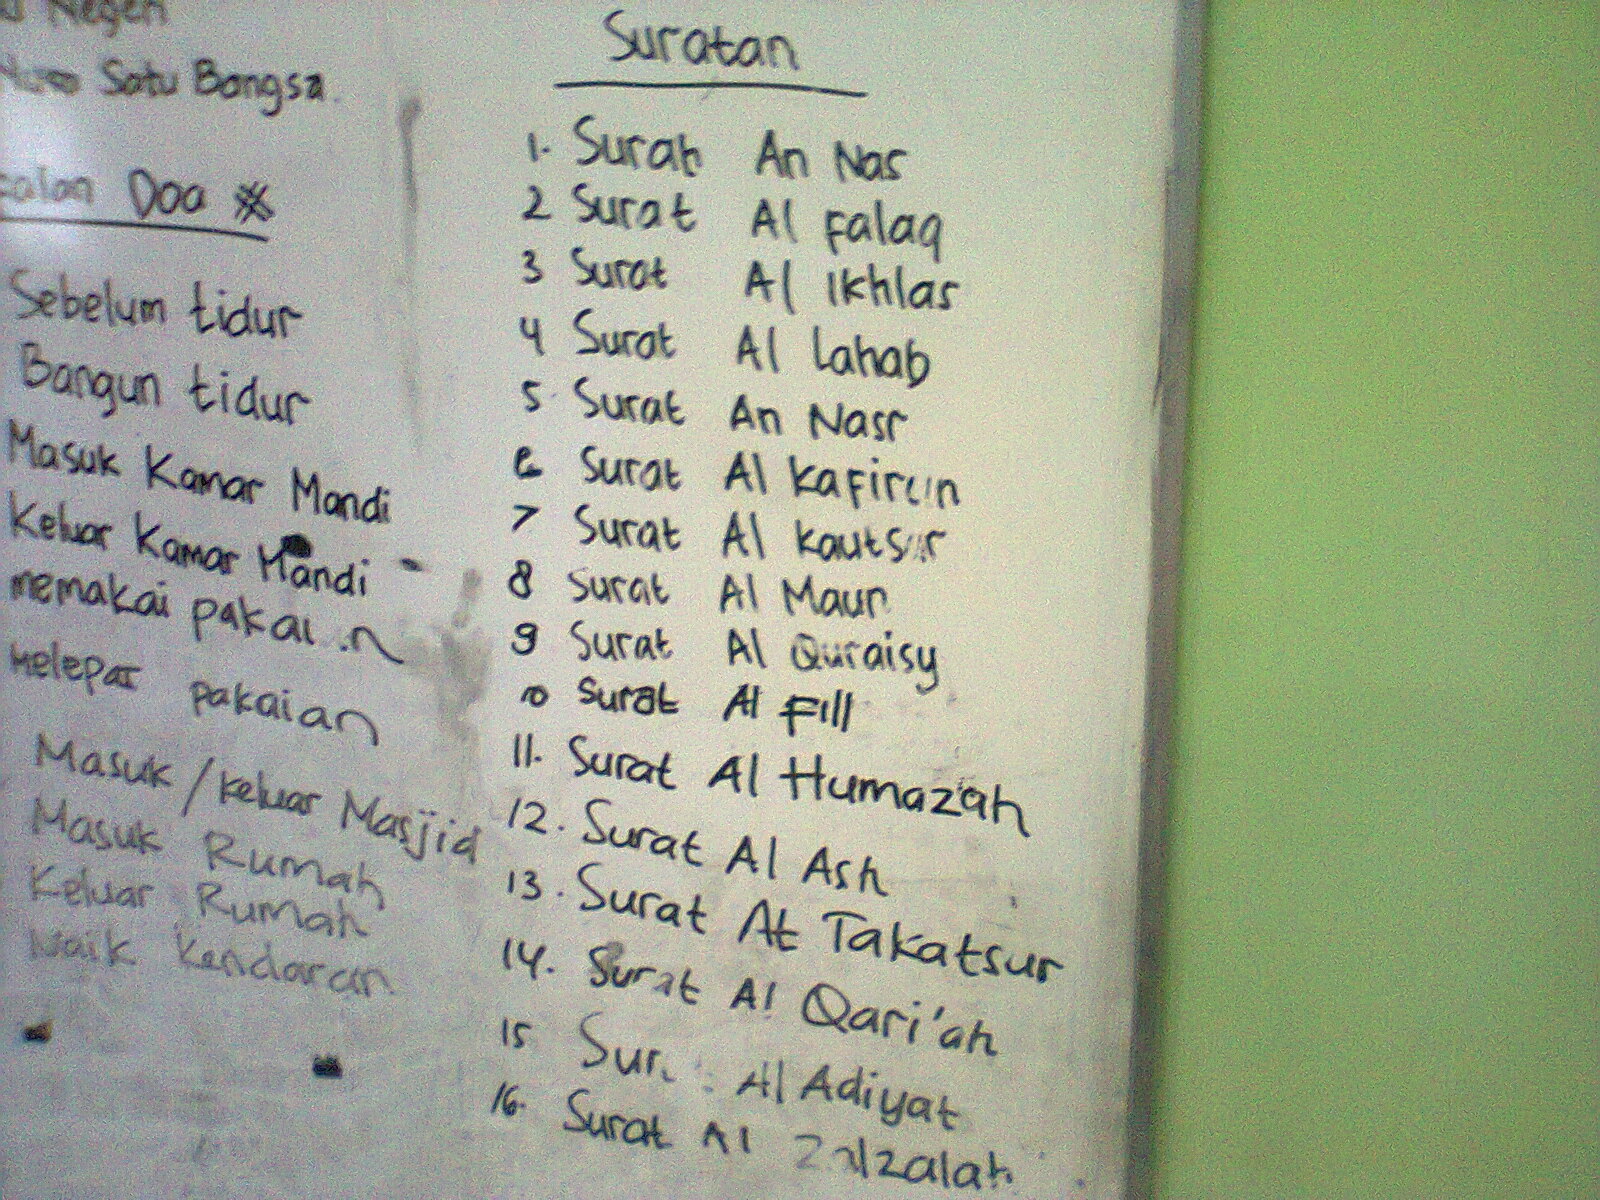 Negeri
Satu Bangsa.
Doa #
Sebelum tidur
Bangun tidur
Masuk Kamar Mandi
Keluar Kamar Mandi
memakai pakai n
Melepas pakaian
Masuk / keluar Masjid
Masuk Rumah
Keluar Rumah
Naik Kendaraan
Suratan
1. Surah An Nas
2 Surat Al Falaq
3 Surat Al Ikhlas
4 Surat Al Lahab
5 Surat An Nasr
6 Surat Al Kafirun
7 Surat Al Kautsar
8 Surat Al Maun
9 Surat Al Quraisy
10 Surat Al Fill
11. Surat Al Humazah
12. Surat Al Ash
13. Surat At Takatsur
14. Surat Al Qari'ah
15 Sur Al Adiyat
16. Surat Al Zalzalah